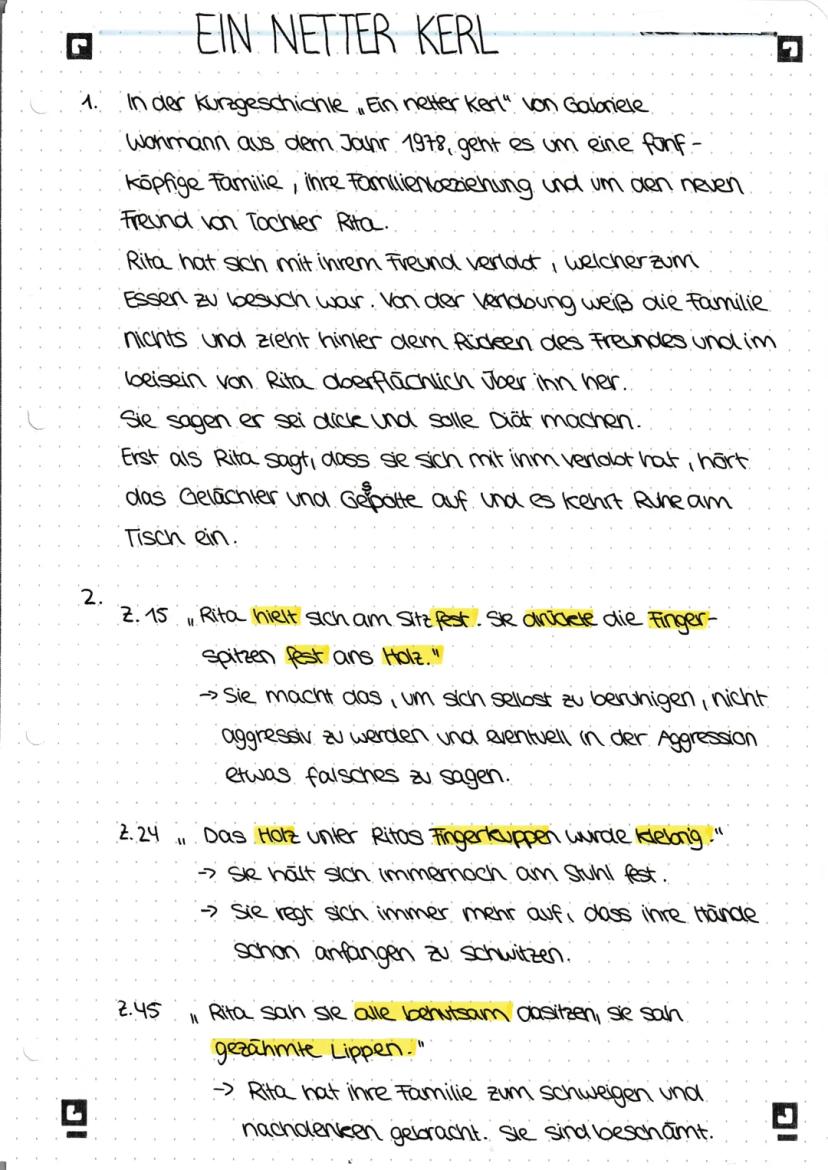 EIN NETTER KERL
1. In der Kurzgeschichte „Ein netter Kerl" von Gabriele
Wohmann aus dem Jahr 1978, geht es um eine fünf-
köpfige Familie, ihre Familienbeziehung und um den neuen
Freund von Tochter Rita.
Rita hat sich mit ihrem Freund verlobt, welcher zum
Essen zu besuch war. Von der Verlobung weiß die Familie
nichts und zieht hinter dem Rücken des Freundes und im
beisein von Rita oberflächlich über ihn her.
Sie sagen er sei dick und solle Diät machen.
Erst als Rita sagt, dass sie sich mit ihm verlobt hat, hört
das Gelächter und Gespotte auf und es kehrt Ruhe am
Tisch ein.
2.
Z. 15 „Rita hielt sich am Sitz fest. Sie drückte die Finger-
spitzen fest ans Holz."
→ Sie macht das, um sich selbst zu beruhigen, nicht
aggressiv zu werden und eventuell in der Aggression
etwas falsches zu sagen.
Z. 24 „Das Holz unter Ritas Fingerkuppen wurde klebrig."
→ Sie hält sich immernoch am Stuhl fest.
→ Sie regt sich immer mehr auf, dass ihre Hände
schon anfangen zu schwitzen.
Z. 45 „Rita sah sie alle behutsam dasitzen, sie sah
gezähmte Lippen."
→ Rita hat ihre Familie zum schweigen und
nachdenken gebracht. Sie sind beschämt.